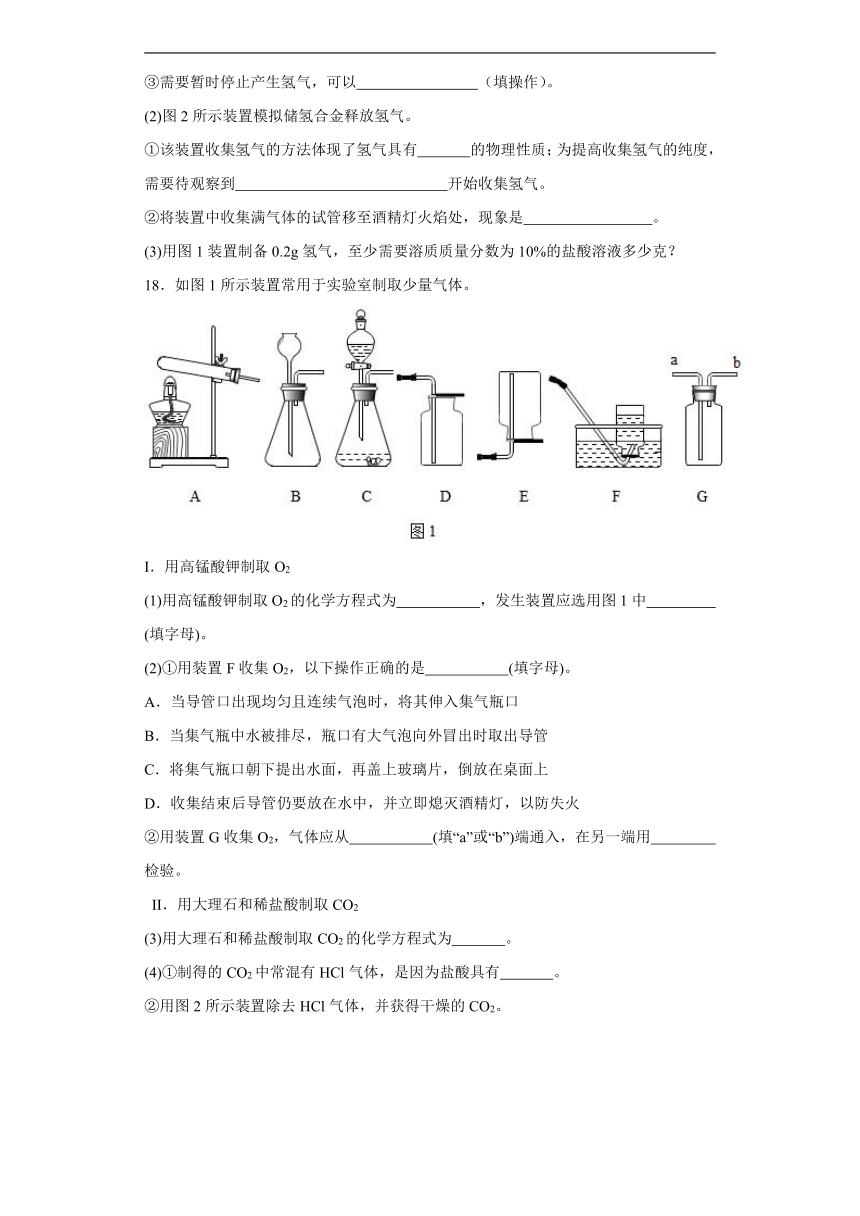 ③需要暂时停止产生氢气，可以（填操作）。
(2)图2所示装置模拟储氢合金释放氢气。
①该装置收集氢气的方法体现了氢气具有 的物理性质；为提高收集氢气的纯度，
需要待观察到 开始收集氢气。
②将装置中收集满气体的试管移至酒精灯火焰处，现象是 。
(3)用图1装置制备0.2g氢气，至少需要溶质质量分数为10%的盐酸溶液多少克？
18．如图1所示装置常用于实验室制取少量气体。
a b
A B C D E F G
图1
I．用高锰酸钾制取O₂
(1)用高锰酸钾制取O₂的化学方程式为 ，发生装置应选用图1中
(填字母)。
(2)①用装置F收集O₂，以下操作正确的是 (填字母)。
A．当导管口出现均匀且连续气泡时，将其伸入集气瓶口
B．当集气瓶中水被排尽，瓶口有大气泡向外冒出时取出导管
C．将集气瓶口朝下提出水面，再盖上玻璃片，倒放在桌面上
D．收集结束后导管仍要放在水中，并立即熄灭酒精灯，以防失火
②用装置G收集O₂，气体应从 (填“a”或“b”)端通入，在另一端用
检验。
II．用大理石和稀盐酸制取CO₂
(3)用大理石和稀盐酸制取CO₂的化学方程式为 。
(4)①制得的CO₂中常混有HCl气体，是因为盐酸具有 。
②用图2所示装置除去HCl气体，并获得干燥的CO₂。